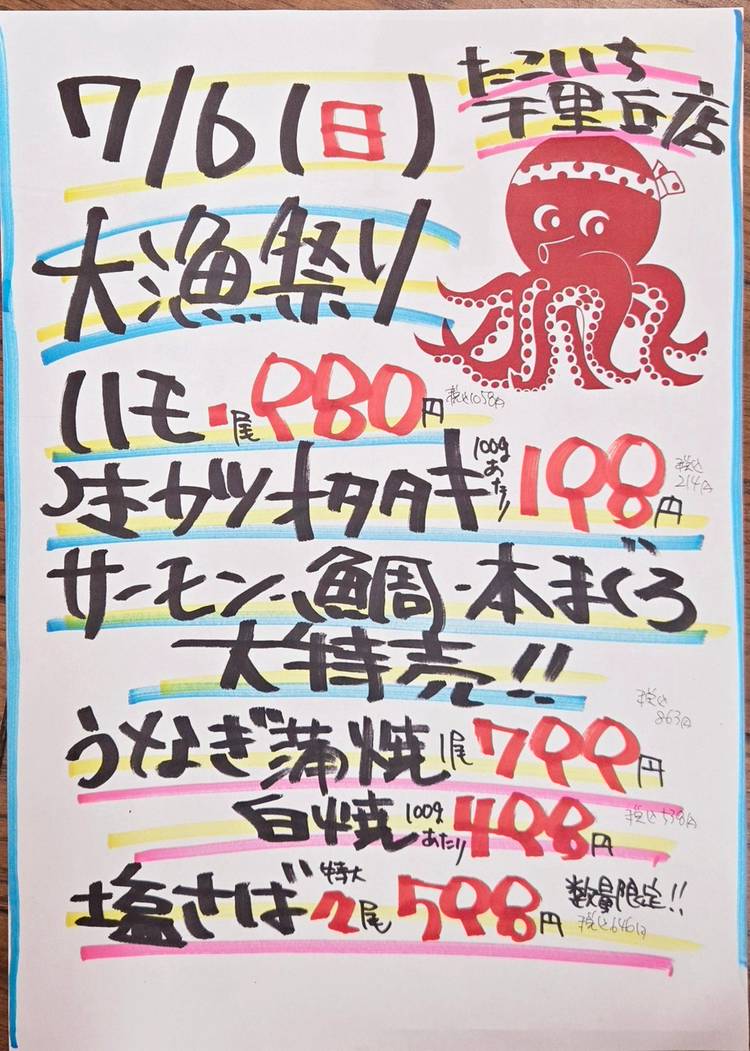 たこいち
千里丘店
7/6(日)
大漁祭り
ハモ 一尾 980円 税込1058円
ガツオタタキ 100gあたり 198円 税込214円
サーモン・鯛・本まぐろ
大特売!!
うなぎ蒲焼 1尾 799円 税込863円
白焼 100gあたり 498円 税込538円
塩さば 特大2尾 598円 数量限定!! 税込646円